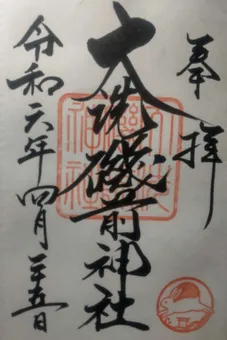 奉拝
大洗磯前神社
令和六年四月二十五日